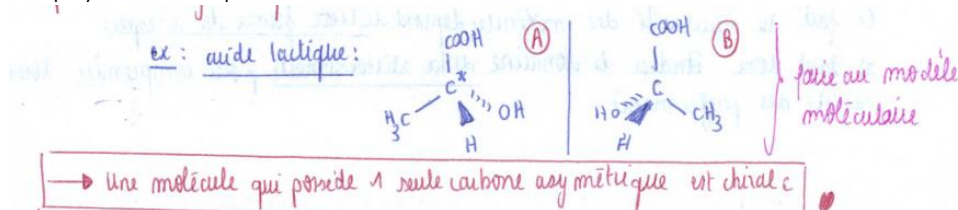 ex : acide lactique :
COOH
A
COOH
B
C*
OH
H3C
H
C
HO
CH3
H
faire au modèle
moléculaire
→ Une molécule qui possède 1 seule carbone asymétrique est chirale